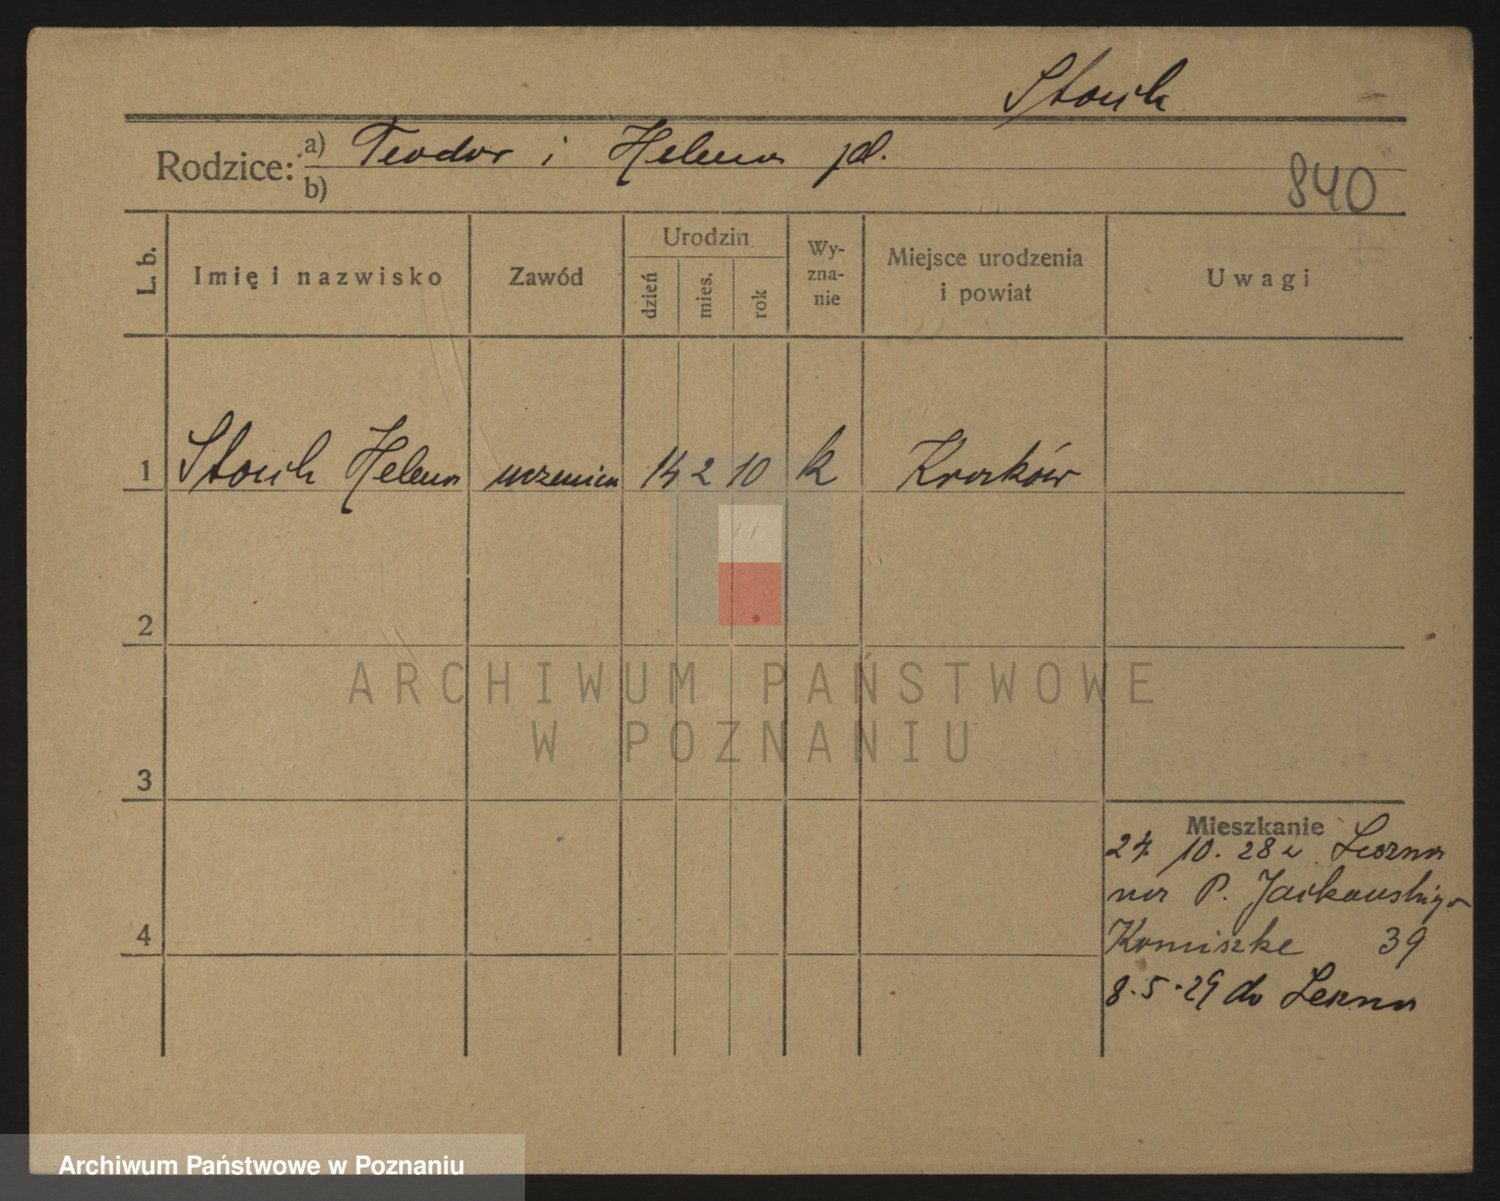 Rodzice: a) Teodor i Helena pl.
b)
840
L. b.
Imię i nazwisko
Zawód
Urodzin
dzień
mies.
rok
Wy-
zna-
nie
Miejsce urodzenia
i powiat
Uwagi
1 Helena uczenica 14 2 10 k Kraków
2
ARCHIWUM PAŃSTWOWE
W POZNANIU
3
Mieszkanie
24 10. 28 z Leszna
na P. Jackowskiego
39
4
8.5.29 do Leszna
Archiwum Państwowe w Poznaniu